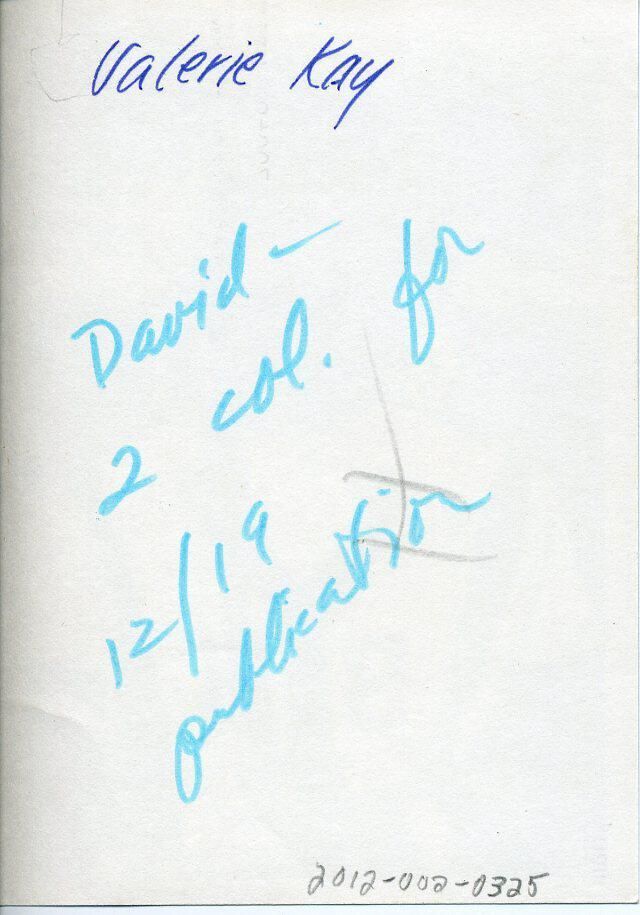 Valerie Kay
David-
2 col. for
12/19
publication
2012-002-0325